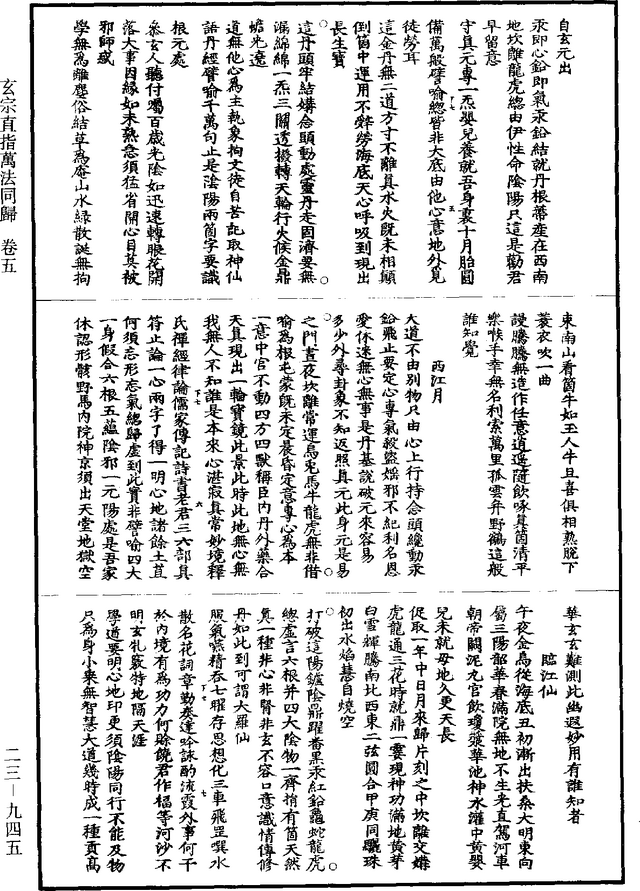 自玄元出
汞即心鉛即氣汞鉛結就丹根蒂產在西南
地坎離龍虎總由伊性命陰陽只這是勸君
早留意
守真元專一炁嬰兒養就吾身裏十月胎圓
備萬般譬喻總皆非大底由他心意地外見
徒勞耳
這金丹無二道方寸不離真水火既未相顛
倒箇中運用不辭勞海底天心呼吸到現出
長生寶
這丹頭牢結搆念頭動處靈丹走固濟要無
漏綿綿一炁三關透撥轉天輪行火候金鼎
蟾光遶
道無他心為主執象拘文徒自苦記取神仙
語丹經譬喻千萬句止是陰陽兩箇字要識
根元處
參玄人聽付囑百歲光陰如迅速轉眼花開
落大事因緣如未熟急須猛省開心目莫被
邪師惑
學無為離塵俗結草為庵山水綠散誕無拘
東南山看箇牛如玉人牛且喜俱相熟脫下
蓑衣吹一曲
謾騰騰無造作任意逍遙隨飲啄真箇清平
樂喉手幸無名利索萬里孤雲并野鶴這般
誰知覺
西江月
大道不由別物只由心上行持念頭纔動汞
鉛飛止要定心專氣殺盜婬邪不犯利名恩
愛休迷無心無事是丹基說破元來容易
多少外尋卦象不知返照真元此身元是易
之門晝夜坎離常運烏兎馬牛龍虎無非借
喻為根屯蒙既未定晨昏定意專心為本
一意中官不動四方四獸稱臣內丹外藥合
天真現出一輪寶鏡此景此時此地無心無
我無人不知誰是本來心湛寂真常妙境釋
氏禪經律論儒家傳記詩書老君三六部真
符止論一心兩字了得一明心地諸餘土苴
何須忘形忘氣總歸虛到此實非譬喻四大
一身假合六根五蘊陰邪一元陽處是吾家
休認形骸野馬內院神京須出天堂地獄空
華玄玄難測此幽遐妙用有誰知者
臨江仙
午夜金烏從海底丑初漸出扶桑大明東向
屬三陽韶華春滿院無地不生光直駕河車
朝帝闕泥九宮飲瓊漿華池神水灌中黃嬰
兒未就母地久更天長
促取一年中日月來歸片刻之中坎離交媾
虎龍通三花時就鼎一霎現神功滿地黃芽
白雪輝騰南北西東二弦圓合甲庚同驪珠
初出水焰慧自燒空
打破這陽鑪陰鼎躍番黑汞紅鉛龜蛇龍虎
總虛言六根并四大陰物一齊捐有箇天然
真一種非心非腎非玄不容口意識情傳修
丹如此到可謂大羅仙
服氣嚥精吞七曜存思想化三車飛罡噀水
散名花詞章勤奏達吟詠酌流霞外事何干
於內境有為功力何賒饒君作福等河沙不
明玄牝竅特地隔天涯
學道要明心地印更須陰陽同行不能及物
只為身小乘無智慧大道幾時成一種貢高
玄宗直指萬法同歸 卷五
二三—九四五